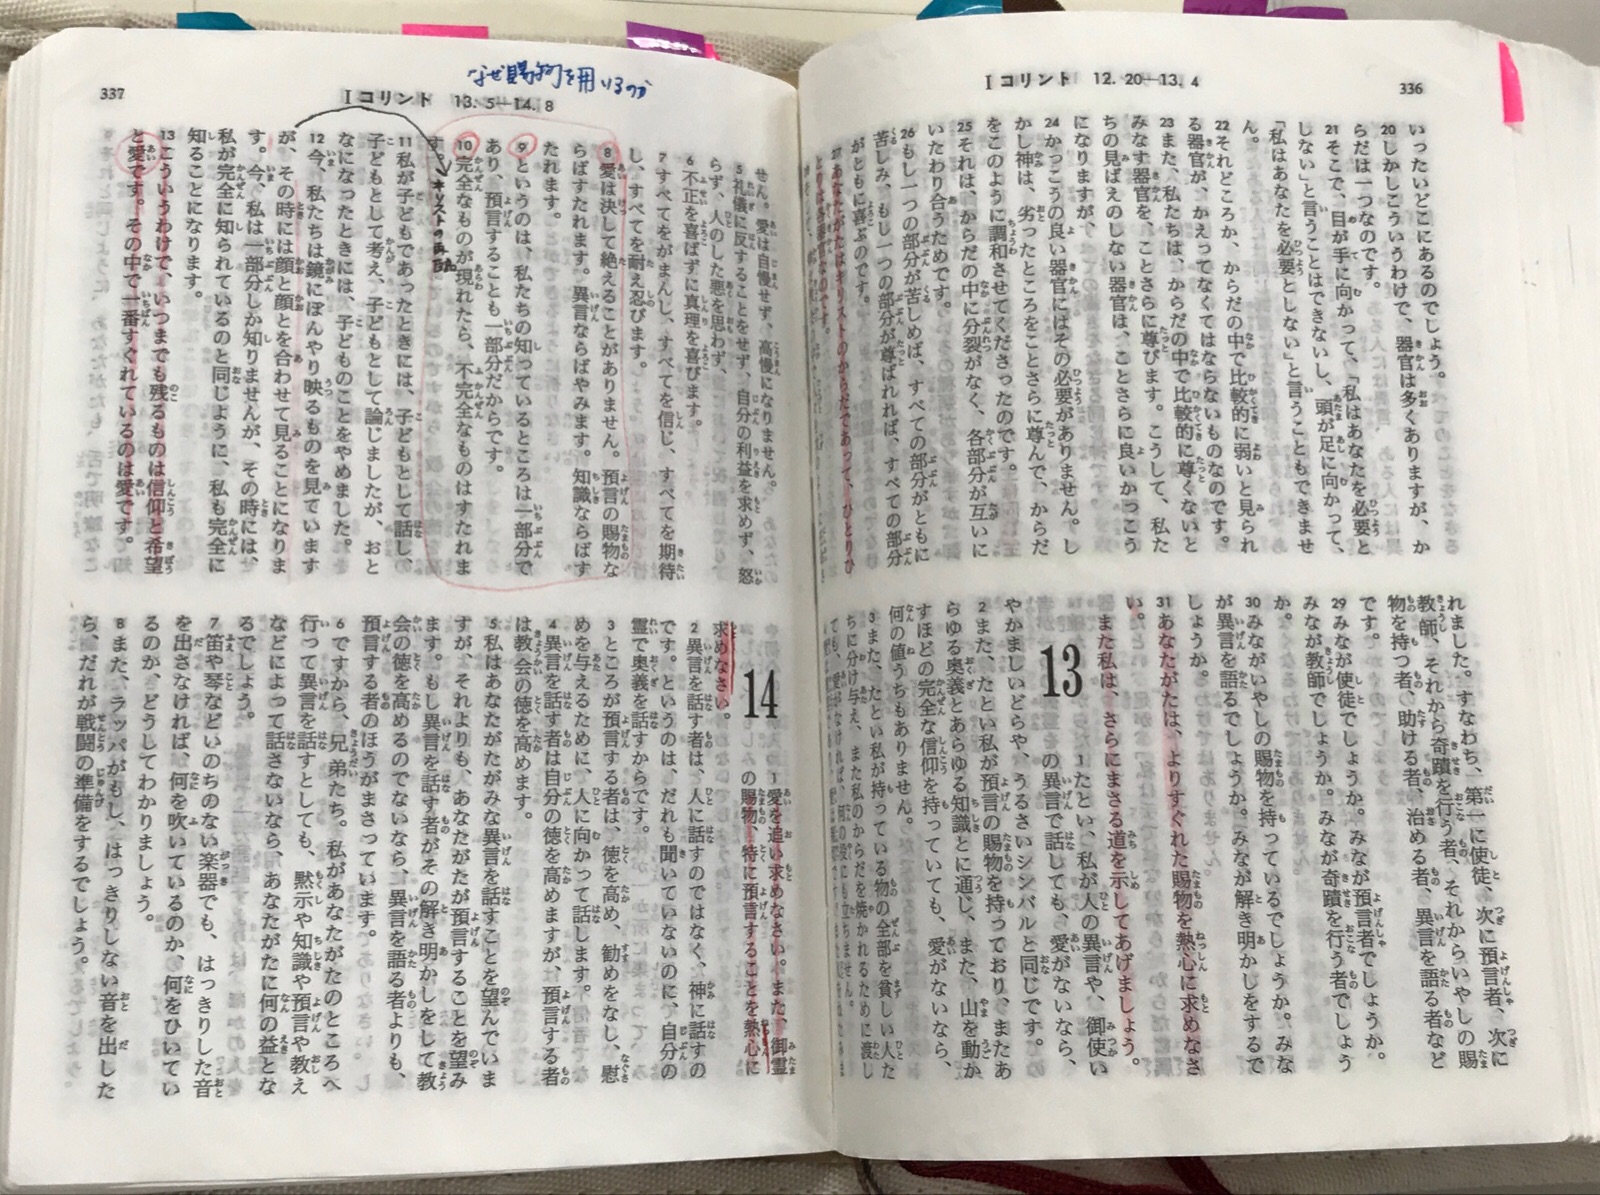 336
Ⅰコリント 12. 20—13. 4
いったいどこにあるのでしょう。
20しかしこういうわけで、器官は多くありますが、か
らだは一つなのです。
21そこで、目が手に向かって、「私はあなたを必要と
しない」と言うことはできないし、頭が足に向かって、
「私はあなたを必要としない」と言うこともできませ
ん。
22それどころか、からだの中で比較的に弱いと見られ
る器官が、かえってなくてはならないものなのです。
23また、私たちは、からだの中で比較的に尊くないと
みなす器官を、ことさらに尊びます。こうして、私た
ちの見ばえのしない器官は、ことさらに良いかっこう
になりますが、
24かっこうの良い器官にはその必要がありません。し
かし神は、劣ったところをことさらに尊んで、からだ
をこのように調和させてくださったのです。
25それは、からだの中に分裂がなく、各部分が互いに
いたわり合うためです。
26もし一つの部分が苦しめば、すべての部分がともに
苦しみ、もし一つの部分が尊ばれれば、すべての部分
がともに喜ぶのです。
27あなたがたはキリストのからだであって、ひとりひ
れました。すなわち、第一に使徒、次に預言者、次に
教師、それから奇蹟を行う者、それからいやしの賜
物を持つ者、助ける者、治める者、異言を語る者など
です。
29みなが使徒でしょうか。みなが預言者でしょうか。
みなが教師でしょうか。みなが奇蹟を行う者でしょう
か。
30みながいやしの賜物を持っているでしょうか。みな
が異言を語るでしょうか。みなが解き明かしをするで
しょうか。
31あなたがたは、よりすぐれた賜物を熱心に求めなさ
い。
また私は、さらにまさる道を示してあげましょう。
13
1たとい、私が人の異言や、御使い
の異言で話しても、愛がないなら、
やかましいどらや、うるさいシンバルと同じです。
2また、たとい私が預言の賜物を持っており、またあ
らゆる奥義とあらゆる知識とに通じ、また、山を動か
すほどの完全な信仰を持っていても、愛がないなら、
何の値うちもありません。
3また、たとい私が持っている物の全部を貧しい人た
ちに分け与え、また私のからだを焼かれるために渡し
ても、愛がなければ、何の役にも立ちません。
337
Ⅰコリント 13. 5—14. 8
なぜ賜物を用いるのか
せん。愛は自慢せず、高慢になりません。
5礼儀に反することをせず、自分の利益を求めず、怒
らず、人のした悪を思わず、
6不正を喜ばずに真理を喜びます。
7すべてをがまんし、すべてを信じ、すべてを期待
し、すべてを耐え忍びます。
8愛は決して絶えることがありません。預言の賜物な
らばすたれます。異言ならばやみます。知識ならばす
たれます。
9というのは、私たちの知っているところは一部分で
あり、預言することも一部分だからです。
10完全なものが現れたら、不完全なものはすたれま
す。
キリストの再臨
11私が子どもであったときには、子どもとして話し、
子どもとして考え、子どもとして論じましたが、おと
なになったときには、子どものことをやめました。
12今、私たちは鏡にぼんやり映るものを見ています
が、その時には顔と顔とを合わせて見ることになりま
す。今、私は一部分しか知りませんが、その時には、
私が完全に知られているのと同じように、私も完全に
知ることになります。
13こういうわけで、いつまでも残るものは信仰と希望
と愛です。その中で一番すぐれているのは愛です。
14
1愛を追い求めなさい。また、御霊
の賜物、特に預言することを熱心に
求めなさい。
2異言を話す者は、人に話すのではなく、神に話すの
です。というのは、だれも聞いていないのに、自分の
霊で奥義を話すからです。
3ところが預言する者は、徳を高め、勧めをなし、慰
めを与えるために、人に向かって話します。
4異言を話す者は自分の徳を高めますが、預言する者
は教会の徳を高めます。
5私はあなたがたがみな異言を話すことを望んでいま
すが、それよりも、あなたがたが預言することを望み
ます。もし異言を話す者がその解き明かしをして教
会の徳を高めるのでないなら、異言を語る者よりも、
預言する者のほうがまさっています。
6ですから、兄弟たち。私があなたがたのところへ
行って異言を話すとしても、黙示や知識や預言や教え
などによって話さないなら、あなたがたに何の益とな
るでしょう。
7笛や琴などいのちのない楽器でも、はっきりした音
を出さなければ、何を吹いているのか、何をひいてい
るのか、どうしてわかりましょう。
8また、ラッパがもし、はっきりしない音を出した
ら、だれが戦闘の準備をするでしょう。